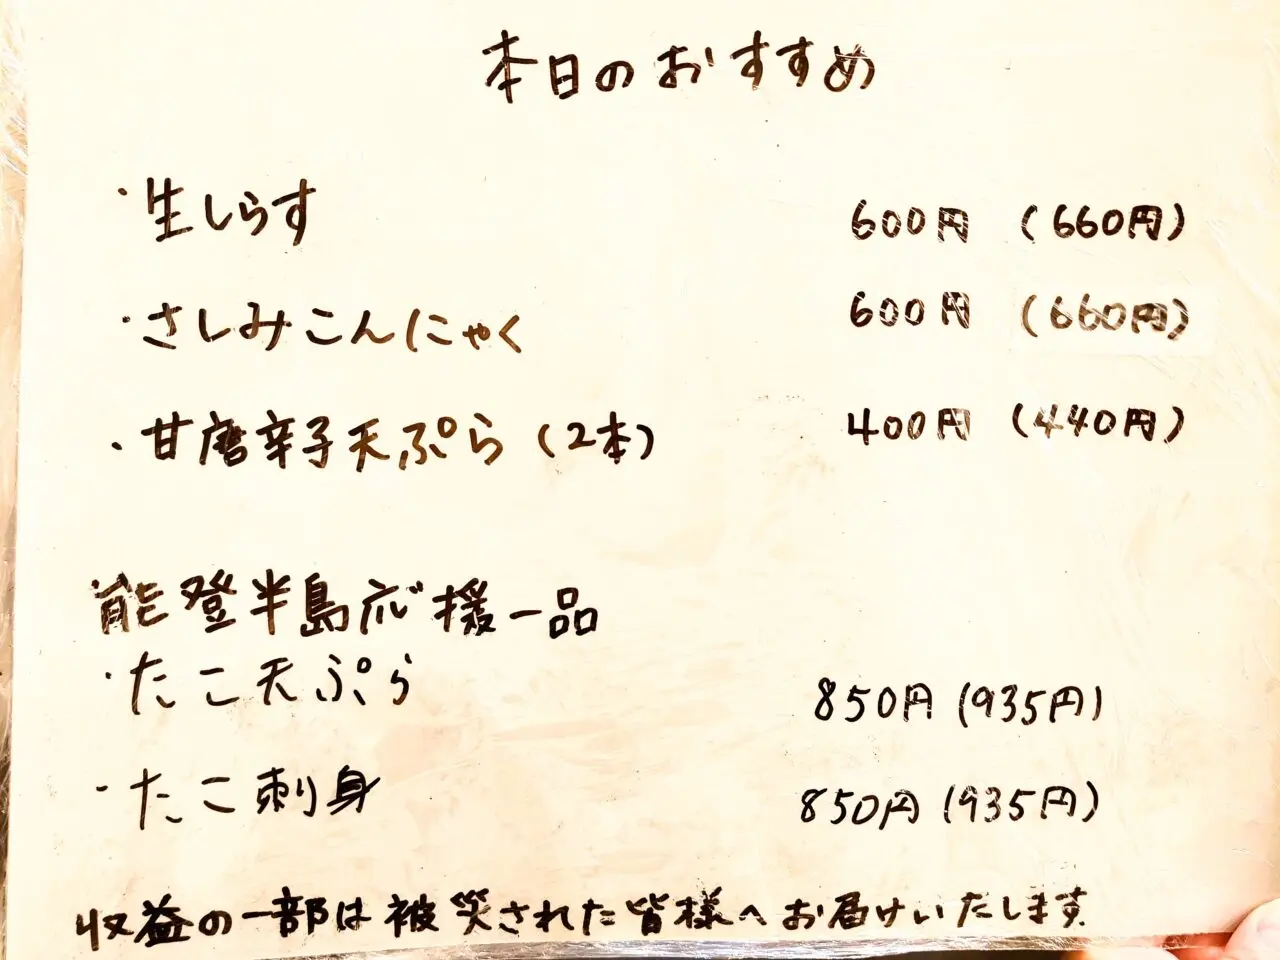 本日のおすすめ
・生しらす 600円 (660円)
・さしみこんにゃく 600円 (660円)
・甘唐辛子天ぷら (2本) 400円 (440円)
能登半島応援一品
・たこ天ぷら 850円 (935円)
・たこ刺身 850円 (935円)
収益の一部は被災された皆様へお届けいたします